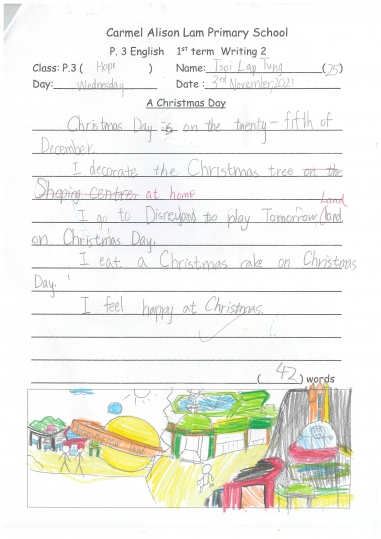 Carmel Alison Lam Primary School
P. 3 English 1st term Writing 2
Class: P.3 ( Hope ) Name: Tsoi Lap Tung (25)
Day: Wednesday Date: 3rd November, 2021
A Christmas Day
Christmas Day is on the twenty-fifth of
December.
I decorate the Christmas tree on the
Shoping centre at home
Land
I go to Disneyland to play Tomorrow land
on Christmas Day.
I eat a Christmas cake on Christmas
Day.
I feel happy at Christmas.
( 42 ) words